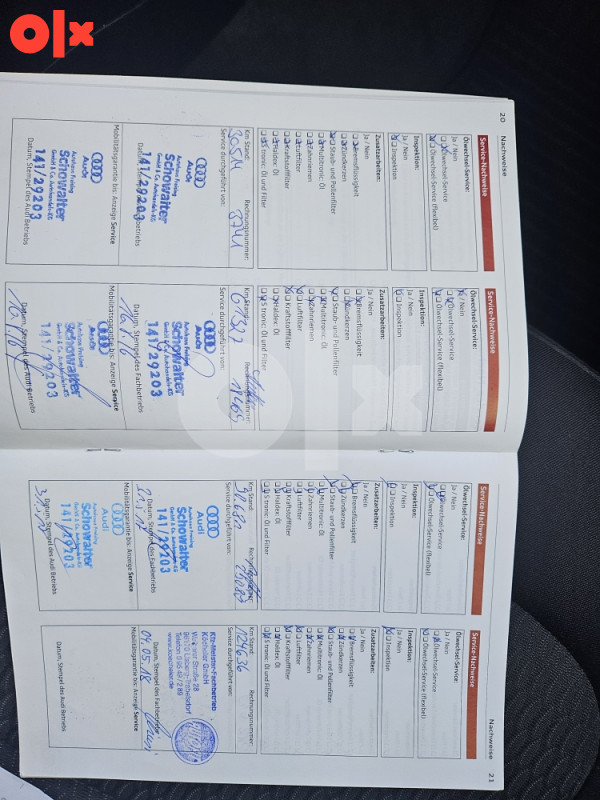 olx
20
Nachweise
Service-Nachweise
Ölwechsel-Service:
Ja / Nein
Ölwechsel-Service
Ölwechsel-Service (flexibel)
Inspektion:
Ja / Nein
Inspektion
Zusatzarbeiten:
Ja / Nein
Bremsflüssigkeit
Zündkerzen
Staub- und Pollenfilter
Multitronic Öl
Zahnriemen
Luftfilter
Kraftstofffilter
Haldex Öl
S tronic Öl und Filter
Km Stand:
Rechnungsnummer:
30514
Service durchgeführt von:
Audi
Autohaus Freising
Schowalter
GmbH & Co. Autohandels-KG
141/29203
Datum, Stempel des Fachbetriebs
Mobilitätsgarantie bis: Anzeige Service
Audi
Schowalter
GmbH & Co. Autohandels-KG
141/29203
Datum, Stempel des Audi Betriebs
Service-Nachweise
Ölwechsel-Service:
Ja / Nein
Ölwechsel-Service
Ölwechsel-Service (flexibel)
Inspektion:
Ja / Nein
Inspektion
Zusatzarbeiten:
Ja / Nein
Bremsflüssigkeit
Zündkerzen
Staub- und Pollenfilter
Multitronic Öl
Zahnriemen
Luftfilter
Kraftstofffilter
Haldex Öl
S tronic Öl und Filter
Km Stand:
Rechnungsnummer:
Service durchgeführt von:
Audi
Schowalter
GmbH & Co. Autohandels-KG
141/29203
Datum, Stempel des Fachbetriebs
Mobilitätsgarantie bis: Anzeige Service
Audi
Schowalter
GmbH & Co. Autohandels-KG
141/29203
Datum, Stempel des Audi Betriebs
olx
Service-Nachweise
Ölwechsel-Service:
Ja / Nein
Ölwechsel-Service
Ölwechsel-Service (flexibel)
Inspektion:
Ja / Nein
Inspektion
Zusatzarbeiten:
Ja / Nein
Bremsflüssigkeit
Zündkerzen
Staub- und Pollenfilter
Multitronic Öl
Zahnriemen
Luftfilter
Kraftstofffilter
Haldex Öl
S tronic Öl und Filter
Km Stand:
Service durchgeführt von:
Audi
Schowalter
141/29203
Datum, Stempel des Fachbetriebs
Mobilitätsgarantie bis: Anzeige Service
Audi
Schowalter
141/29203
Datum, Stempel des Audi Betriebs
Nachweise
21
Service-Nachweise
Ölwechsel-Service:
Ja / Nein
Ölwechsel-Service
Ölwechsel-Service (flexibel)
Inspektion:
Ja / Nein
Inspektion
Zusatzarbeiten:
Ja / Nein
Bremsflüssigkeit
Zündkerzen
Staub- und Pollenfilter
Multitronic Öl
Zahnriemen
Luftfilter
Kraftstofffilter
Haldex Öl
S tronic Öl und Filter
Km Stand:
Rechnungsnummer:
124636
Service durchgeführt von:
Kfz-Meister-Fachbetrieb
GmbH
04.05.18
Datum, Stempel des Fachbetriebs
Mobilitätsgarantie bis: Anzeige Service
Datum, Stempel des Audi Betriebs